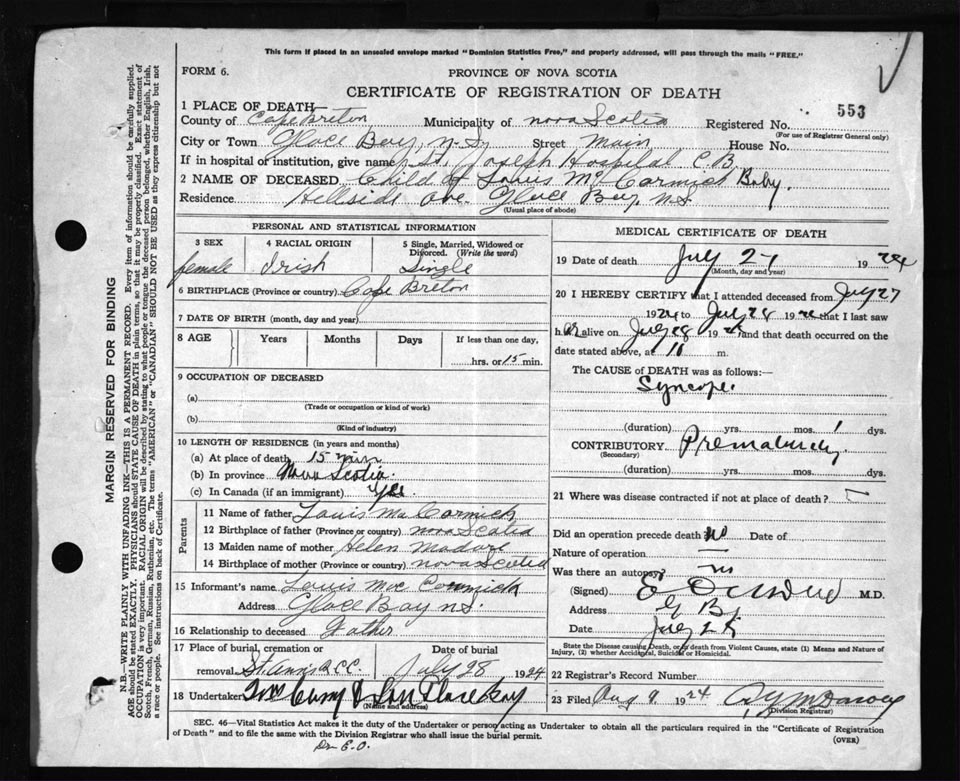 This form if placed in an unsealed envelope marked "Dominion Statistics Free," and properly addressed, will pass through the mails "FREE."
FORM 6.
PROVINCE OF NOVA SCOTIA
CERTIFICATE OF REGISTRATION OF DEATH
1 PLACE OF DEATH—
553
County of Cape Breton Municipality of Nova Scotia Registered No.
(For use of Registrar General only)
City or Town Glace Bay, N.S. Street Main House No.
If in hospital or institution, give name St. Joseph Hospital C.B.
2 NAME OF DECEASED Child of Louis McCormick Baby.
Residence Hillside Ave. Glace Bay. N.S.
(Usual place of abode)
PERSONAL AND STATISTICAL INFORMATION
3 SEX 4 RACIAL ORIGIN 5 Single, Married, Widowed or Divorced. (Write the word)
female Irish Single
6 BIRTHPLACE (Province or country) Cape Breton
7 DATE OF BIRTH (month, day and year)
8 AGE Years Months Days If less than one day,
hrs. or 15 min.
9 OCCUPATION OF DECEASED
(a)
(Trade or occupation or kind of work)
(b)
(Kind of industry)
10 LENGTH OF RESIDENCE (in years and months)
(a) At place of death 15 min
(b) In province Nova Scotia.
(c) In Canada (if an immigrant) yes
Parents
11 Name of father Louis MacCormick
12 Birthplace of father (Province or country) Nova Scotia
13 Maiden name of mother Helen
14 Birthplace of mother (Province or country) Nova Scotia
15 Informant's name Louis Mac Cormick
Address Glace Bay N.S.
16 Relationship to deceased Father
17 Place of burial, cremation or Date of burial
removal St. Anns R.C.C. July 28 1924
18 Undertaker Glace Bay
(Name and address)
MEDICAL CERTIFICATE OF DEATH
19 Date of death July 1924
(Month, day and year)
20 I HEREBY CERTIFY that I attended deceased from July 27
1924 to July 28 1924 that I last saw
her alive on July 28 1924 and that death occurred on
date stated above, at m.
The CAUSE of DEATH was as follows:—
Syncope.
(duration) yrs. mos. 1 dys.
CONTRIBUTORY Prematurity
(Secondary)
(duration) yrs. mos. dys.
21 Where was disease contracted if not at place of death?
Did an operation precede death no Date of
Nature of operation —
Was there an autopsy? no
(Signed) M.D.
Address G B.
Date July
State the Disease causing Death, or in death from Violent Causes, state (1) Means and Nature of Injury, (2) whether Accidental, Suicidal or Homicidal.
22 Registrar's Record Number
23 Filed Aug 9 1924
Division Registrar
SEC. 46—Vital Statistics Act makes it the duty of the Undertaker or person acting as Undertaker to obtain all the particulars required in the "Certificate of Registration
of Death" and to file the same with the Division Registrar who shall issue the burial permit.
(OVER)
Dr. E.O.
MARGIN RESERVED FOR BINDING
N.B.—WRITE PLAINLY WITH UNFADING INK—THIS IS A PERMANENT RECORD. Every item of information should be carefully supplied.
AGE should be stated EXACTLY. PHYSICIANS should STATE CAUSE OF DEATH in plain terms, so that it may be properly classified. Exact statement of
OCCUPATION is very important. RACIAL ORIGIN will be described by stating to what people or tongue the deceased person belonged, whether English, Irish,
Scotch, French, German, Russian, Ruthenian, etc. The terms "AMERICAN" or "CANADIAN" SHOULD NOT BE USED as they express citizenship but not
a race or people. See instructions on back of Certificate.